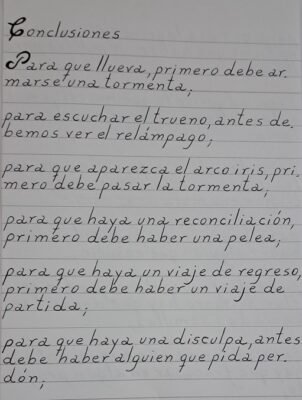 Conclusiones
Para que llueva, primero debe ar.
marse una tormenta;
para escuchar el trueno, antes de.
bemos ver el relámpago;
para que aparezca el arco iris, pri.
mero debe pasar la tormenta;
para que haya una reconciliación,
primero debe haber una pelea;
para que haya un viaje de regreso,
primero debe haber un viaje de
partida;
para que haya una disculpa, antes
debe haber alguien que pida per.
dón;